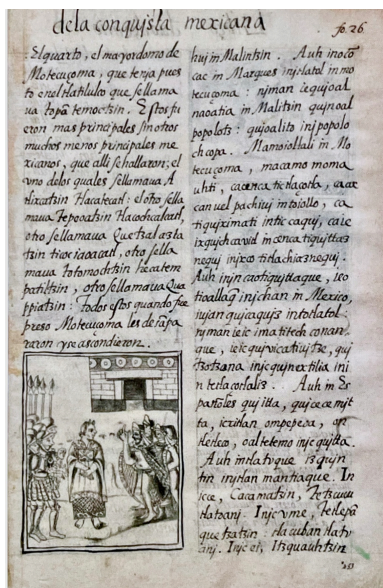 dela conquista mexicana
fo. 26.
El quarto, el mayordomo de
Motecuçoma, que tenja pues
to en el tlatilulco que sellama
ua topã temoctzin. Estos fu
eron mas principales, sin otros
muchos menos principales me
xicanos, que alli se hallaron: el
vno delos quales sellamaua A
tlixcatzin tlacatecatl: el otro sella
maua Tepeoatzin tlacochcalcatl,
otro sellamaua Quetzalaztla
tzin ticociaoacatl, otro sella
maua totomochtzin hecatem
patiltzin, otro sellamaua Qua
ppiatzin: Todos estos quando fue
preso Motecuçoma le desãpa
raron y se ascondieron.
huj in Malintzin. Auh in oco
cac in Marques injtlatol in mo
tecuçoma: njman ic quioal
naoatia in Malitzin qujnoal
popolotz: qujoalito in popolo
chcopa. Ma moiollali in Mo
tecuçoma, macamo moma
uhti, ca cenca tictlaçotla, ca ax
can vel pachiuj in toiollo, ca
tiquiximati in tic caquj, ca ie
ixqujch cavitl in cenca tiquittaz
nequj in jxco titlachiaznequj.
Auh injn ca otiquittaque, ie o
tioallaq̃ injchan in Mexico,
iujan qujcaqujz in totlatol:
njman ie ic imatitech conan
que, ie ic qujvicatiujtze, quj
tzotzona injc qujnextilia inj
n tetlaçotlaliz. Auh in Es
pañoles qujtta, qujcecemjt
ta, icxitlan ompepeoa, on
tletleco, oaltetemo injc qujtta.
Auh in tlatoque iz qujn
tin injtlan mantiaque. In
ic ce, Cacamatzin, Tetzcucu
tlatoanj. Injc vme, tetlepã
quetzatzin: tlacuban tlatv
anj. Injc ei, Itzquauhtzin